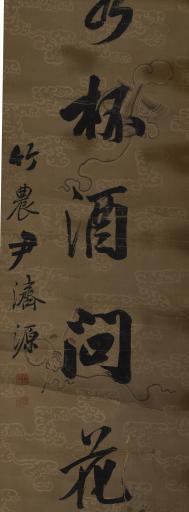 杯酒問花
竹農尹濟源